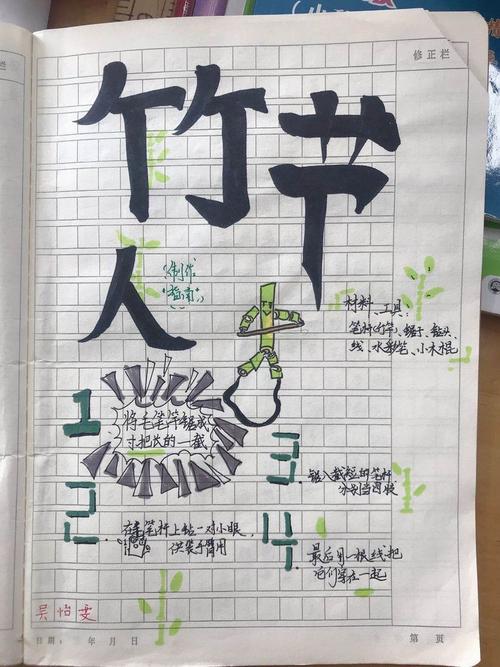 修正栏
竹节
人
制作
指南
材料、工具:
笔杆(竹竿)、锯子、钻头、
线、水彩笔、小木棍
1
将毛笔竿锯成
寸把长的一截
2
在笔杆上钻一对小眼,
供装手臂用
3
锯八截短的笔杆
分别当四肢
4
最后用一根线把
它们穿在一起
吴怡雯
日期: 年 月 日
第 页